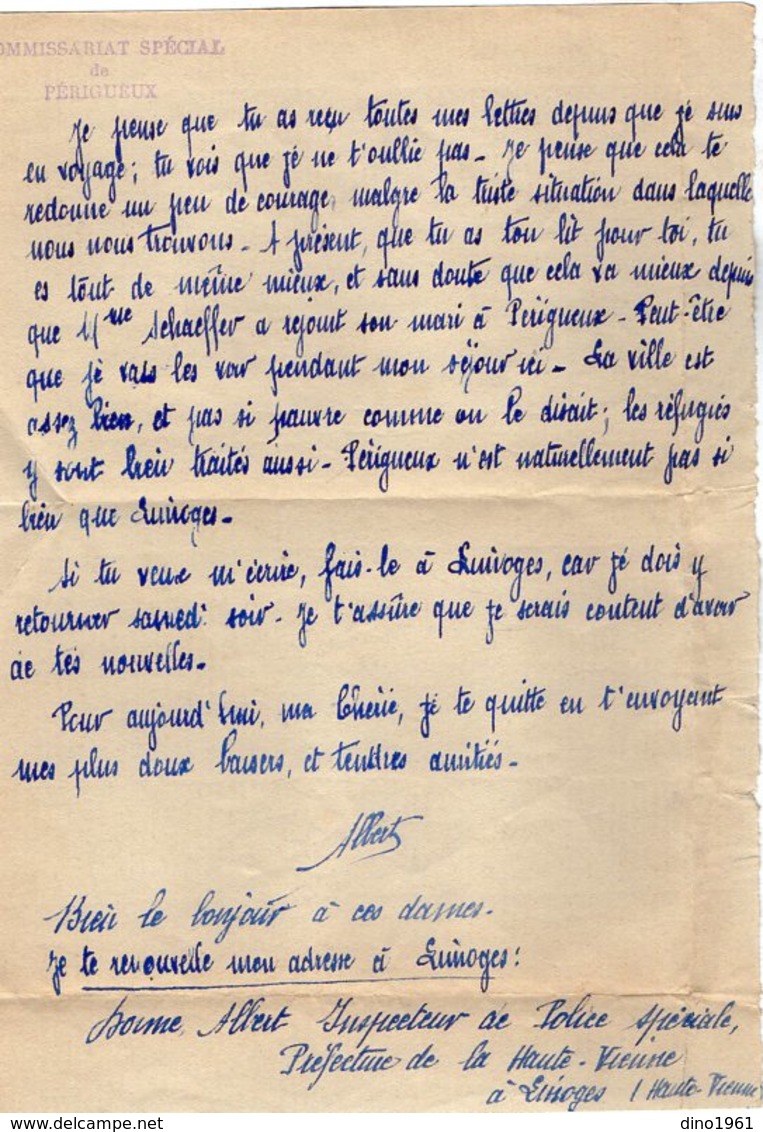 OMMISSARIAT SPÉCIAL
de
PÉRIGUEUX
Je pense que tu as reçu toutes mes lettres depuis que je suis
en voyage; tu vois que je ne t'oublie pas - Je pense que cela te
redonne un peu de courage, malgre la triste situation dans laquelle
nous nous trouvons - A présent, que tu as ton lit pour toi, tu
es tout de même mieux, et sans doute que cela va mieux depuis
que Mme Schaeffer a rejoint son mari à Périgueux - Peut-être
que je vais les voir pendant mon séjour ici - La ville est
assez bien, et pas si pauvre comme on le disait; les réfugiés
y sont bien traités aussi - Périgueux n'est naturellement pas si
bien que Limoges -
Si tu veux m'écrire, fais-le à Limoges, car je dois y
retourner samedi soir - Je t'assûre que je serais content d'avoir
de tes nouvelles -
Pour aujourd'hui, ma Chérie, je te quitte en t'envoyant
mes plus doux baisers, et tendres amitiés -
Albert
Bien le bonjour à ces dames -
Je te renouvelle mon adresse à Limoges:
Albert Inspecteur de Police spéciale,
Préfecture de la Haute-Vienne
à Limoges (Haute-Vienne
dino1961